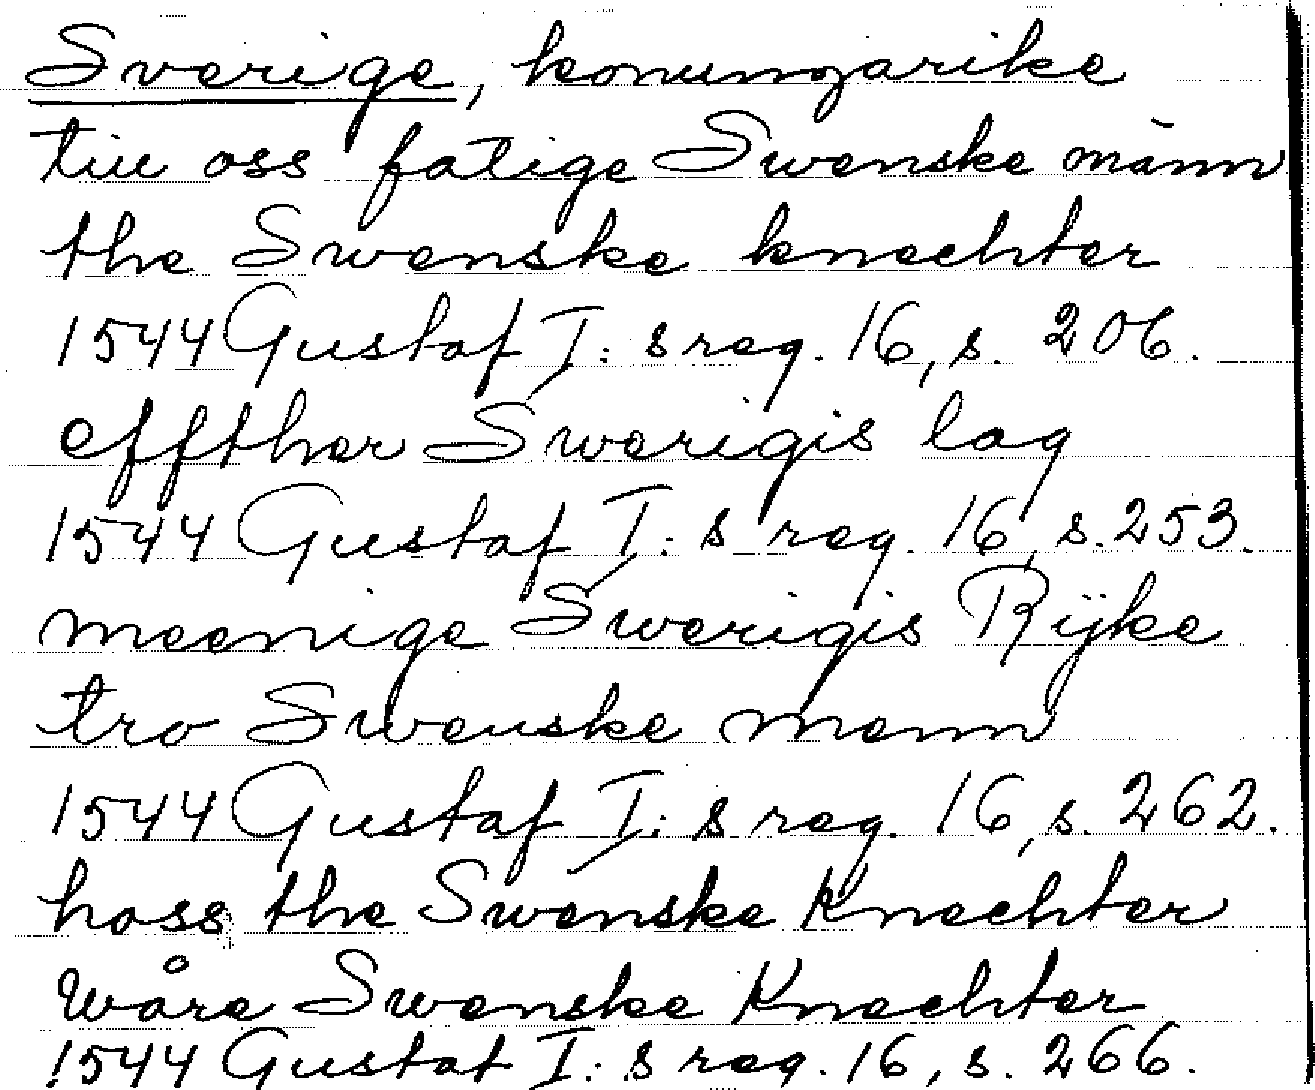 Sverige, konungarike
till oss fatige Swenske männ
the Swenske knechter
1544 Gustaf I:s reg. 16, s. 206.
effther Swerigis lag
1544 Gustaf I:s reg. 16, s. 253.
meenige Swerigis Rijke
tro Swenske menn
1544 Gustaf I:s reg. 16, s. 262.
hoss the Swenske Knechter
Wåre Swenske Knechter
1544 Gustaf I:s reg. 16, s. 266.